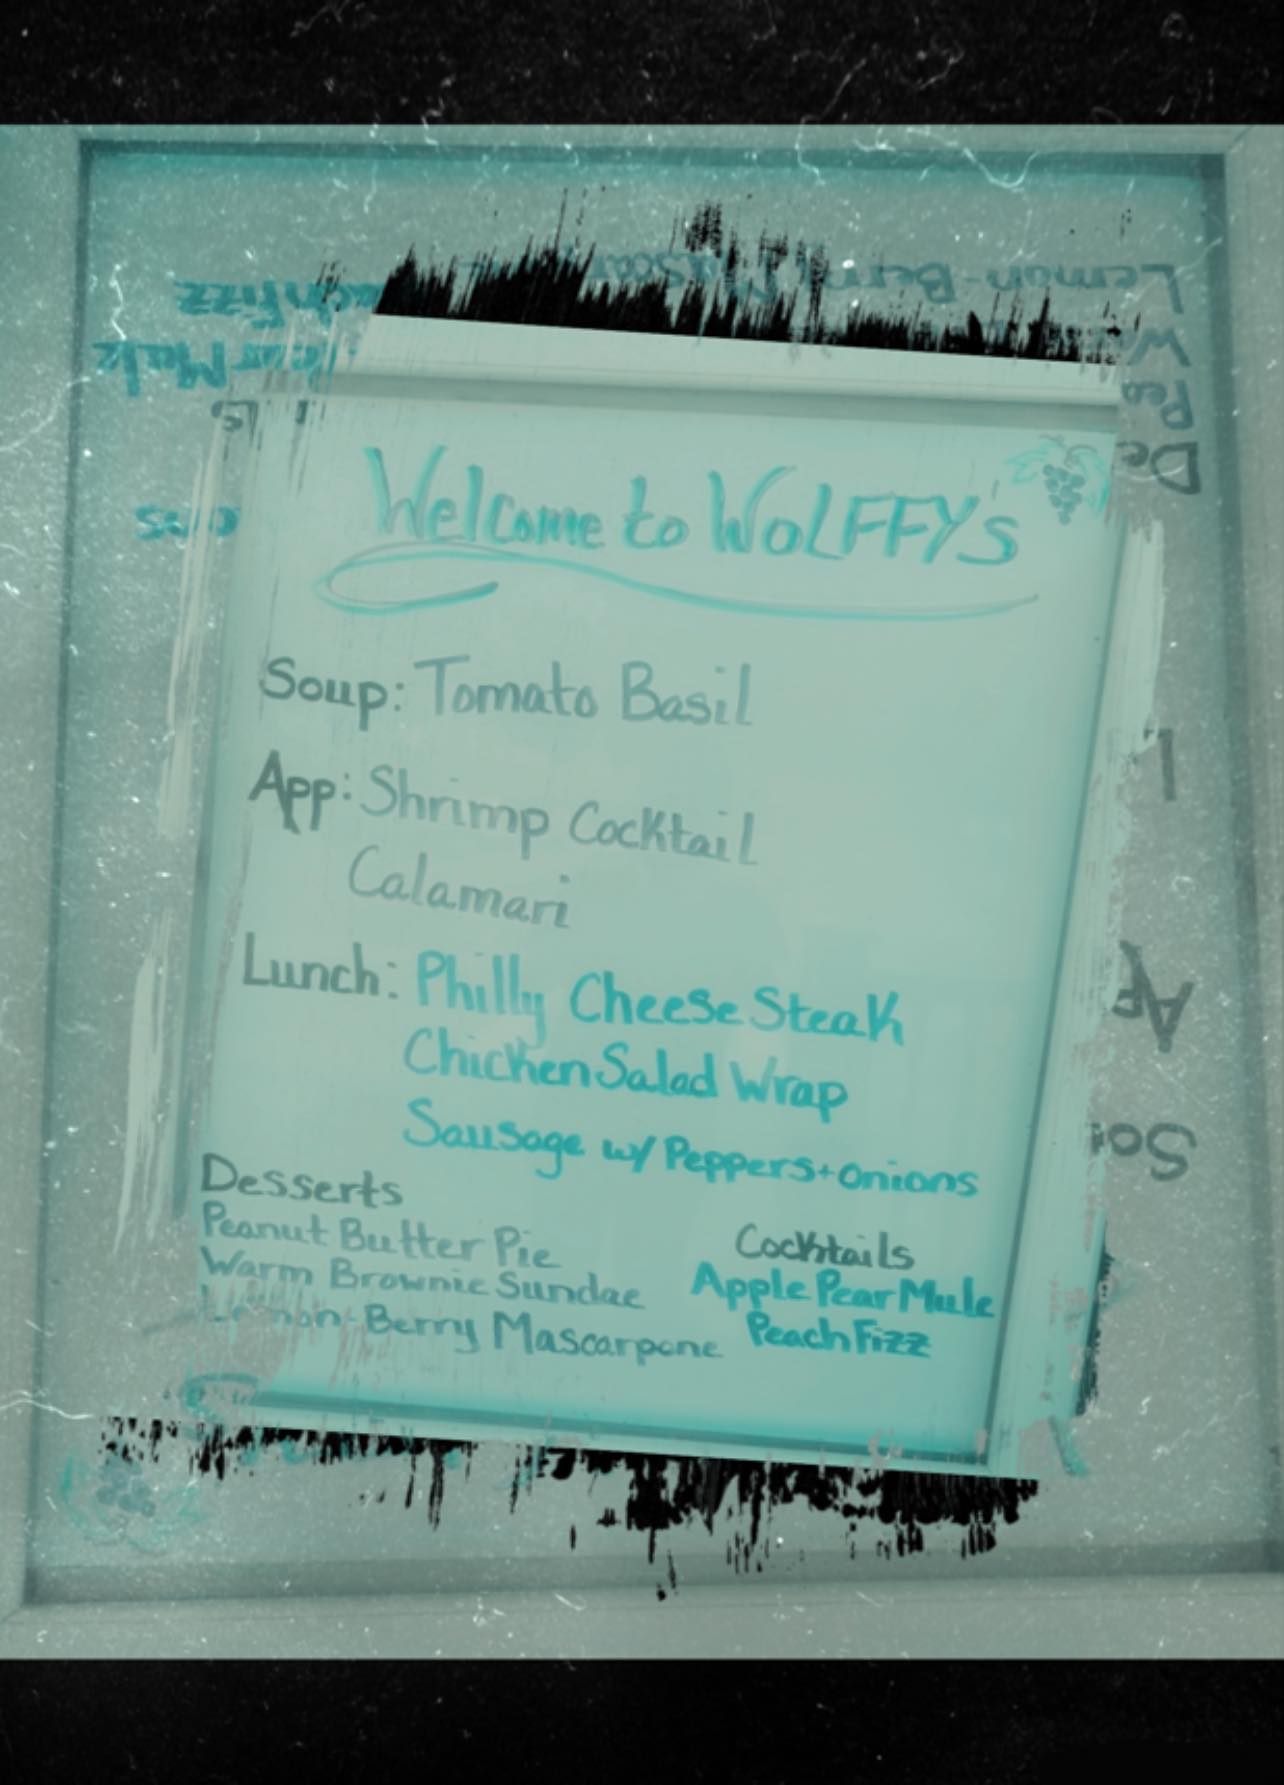 Welcome to WOLFFY's
Soup: Tomato Basil
App: Shrimp Cocktail
Calamari
Lunch: Philly Cheese Steak
Chicken Salad Wrap
Sausage w/ Peppers + Onions
Desserts
Peanut Butter Pie
Warm Brownie Sundae
Lemon-Berry Mascarpone
Cocktails
Apple Pear Mule
Peach Fizz